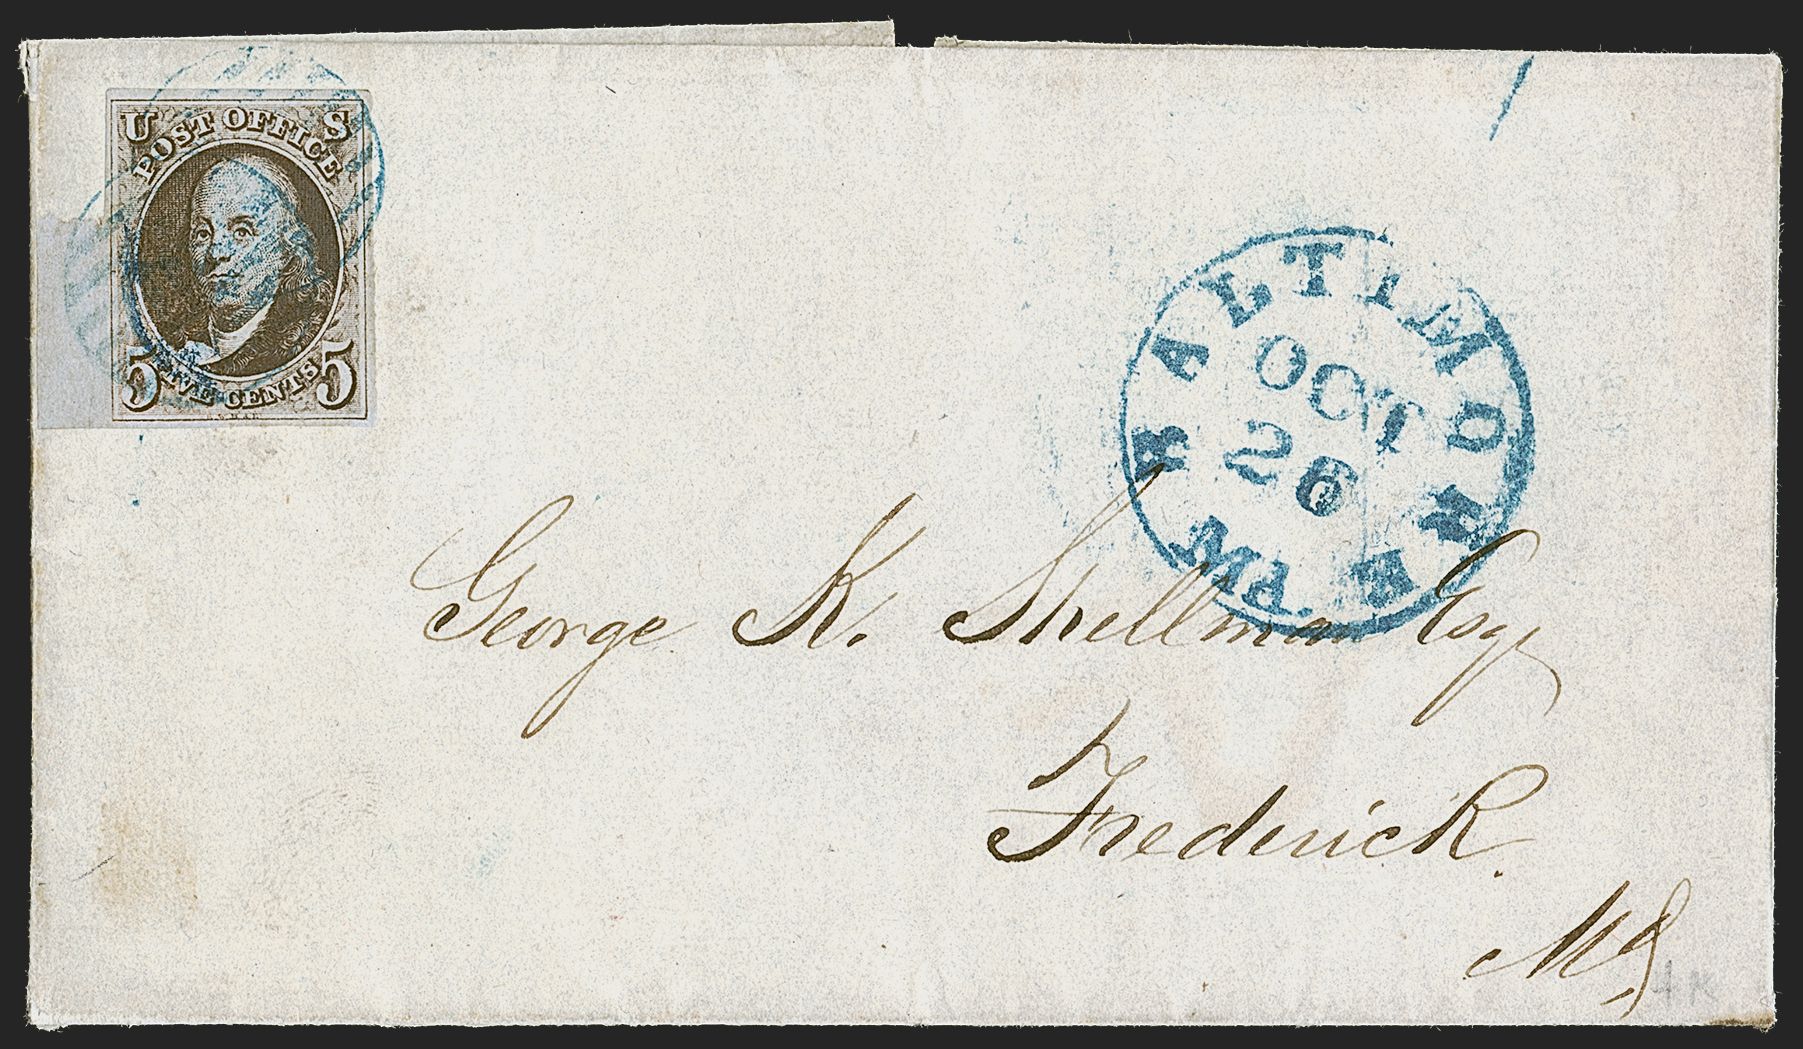 U S
POST OFFICE
5 FIVE CENTS 5
BALTIMORE
OCT
26
Md.
George K. Shellman Esq
Frederick.
Md
4 K